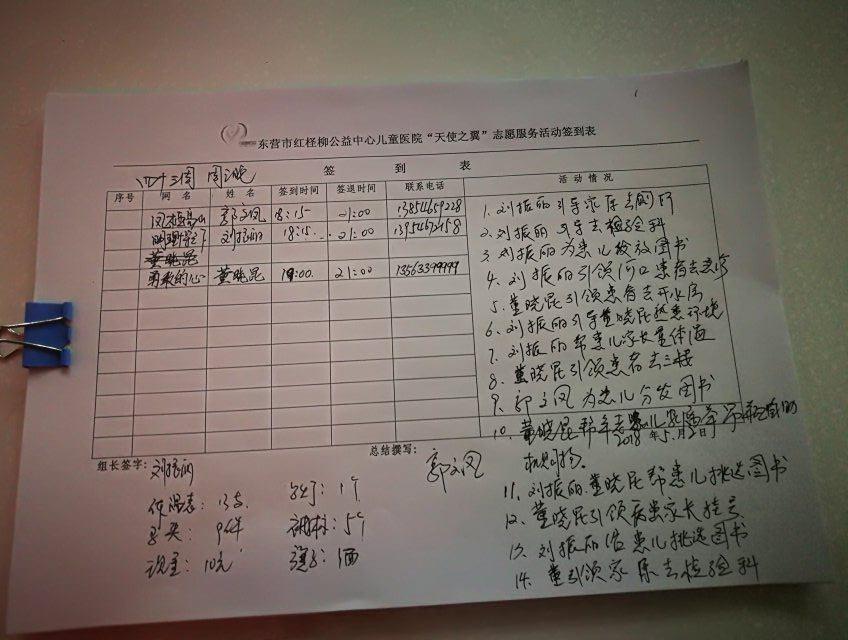 东营市红柽柳公益中心儿童医院“天使之翼”志愿服务活动签到表
四十三周 周三晚
签到表
序号 网名 姓名 签到时间 签退时间 联系电话 活动情况
郭文凤 18:15 21:00 13854659228
刘振丽 18:15 21:00
董晓昆
勇敢的心 董晓昆 19:00. 21:00 13563399999
1. 刘振丽引导家属去厕所
2. 刘振丽引导去检验科
3 刘振丽为患儿发放图书
4. 刘振丽引领河口患者去急诊
5. 董晓昆引领患者去开水房
6. 刘振丽引导董晓昆熟悉环境
7. 刘振丽帮患儿家长量体温
8. 董晓昆引领患者去三楼
9. 郭文凤为患儿分发图书
10. 董晓昆帮年
2018年5月2日
11. 刘振丽.董晓昆帮患儿挑选图书
12. 董晓昆引领病患家长挂号
13. 刘振丽给患儿挑选图书
14. 董引领家属去检验科
组长签字: 刘振丽
总结撰写: 郭文凤
体温表: 13支 个
马夹: 9件 5个
现金: 10元 1面